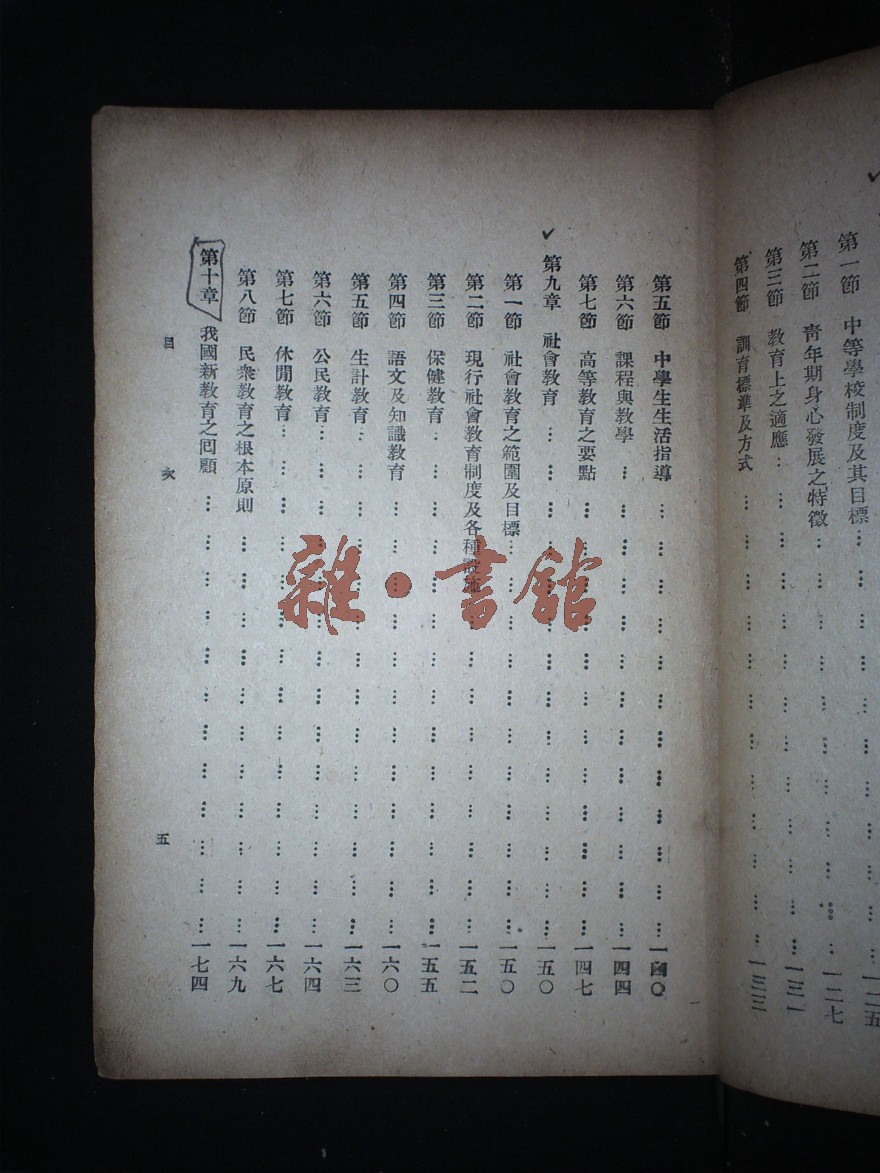 第一節 中等學校制度及其目標………一二五
第二節 靑年期身心發展之特徵………一二七
第三節 教育上之適應………一三一
第四節 訓育標準及方式………一三三
第五節 中學生生活指導………一四〇
第六節 課程與教學………一四四
第七節 高等教育之要點………一四七
第九章 社會教育………一五〇
第一節 社會教育之範圍及目標………一五〇
第二節 現行社會教育制度及各種設施………一五二
第三節 保健教育………一五五
第四節 語文及知識教育………一六〇
第五節 生計教育………一六三
第六節 公民教育………一六四
第七節 休閒教育………一六七
第八節 民衆教育之根本原則………一六九
第十章 我國新教育之囘顧………一七四
目 次 五
雜·書館